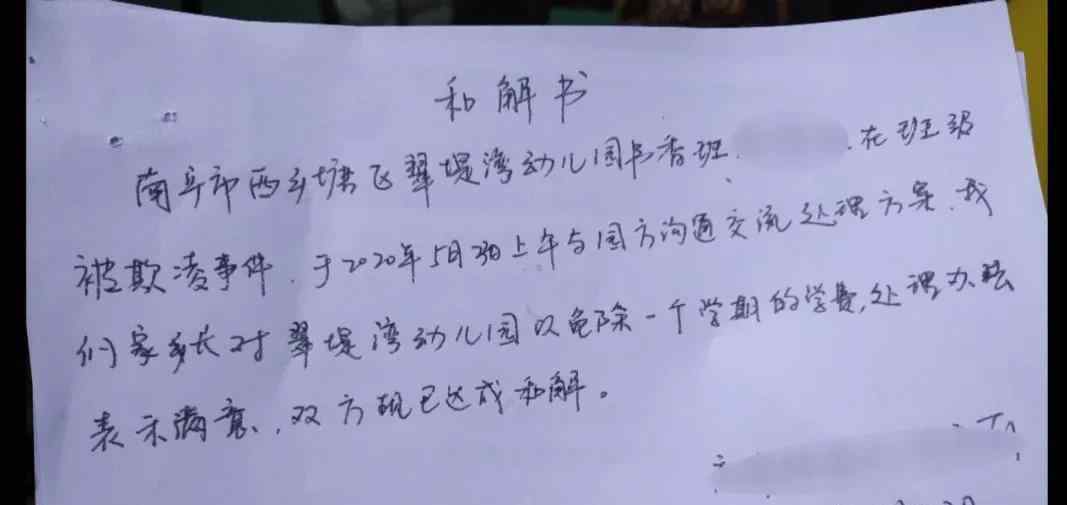 和解书
南宁市西乡塘区翠堤湾幼儿园书香班 在班级
被欺凌事件.于2020年5月 日上午与园方沟通交流处理方案.我
们家长对翠堤湾幼儿园以免除一个学期的学费,处理办法
表示满意.双方现已达成和解。